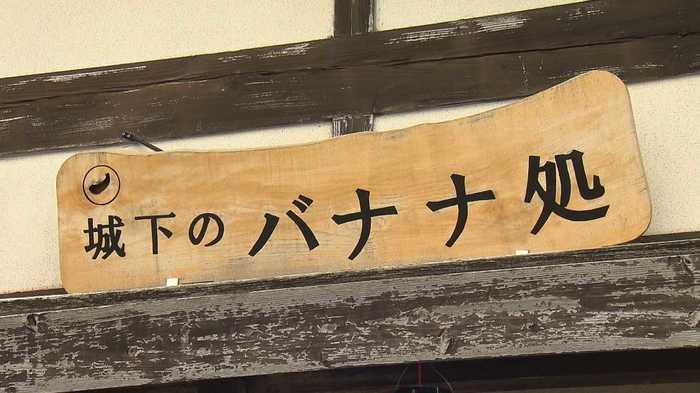 城下のバナナ処